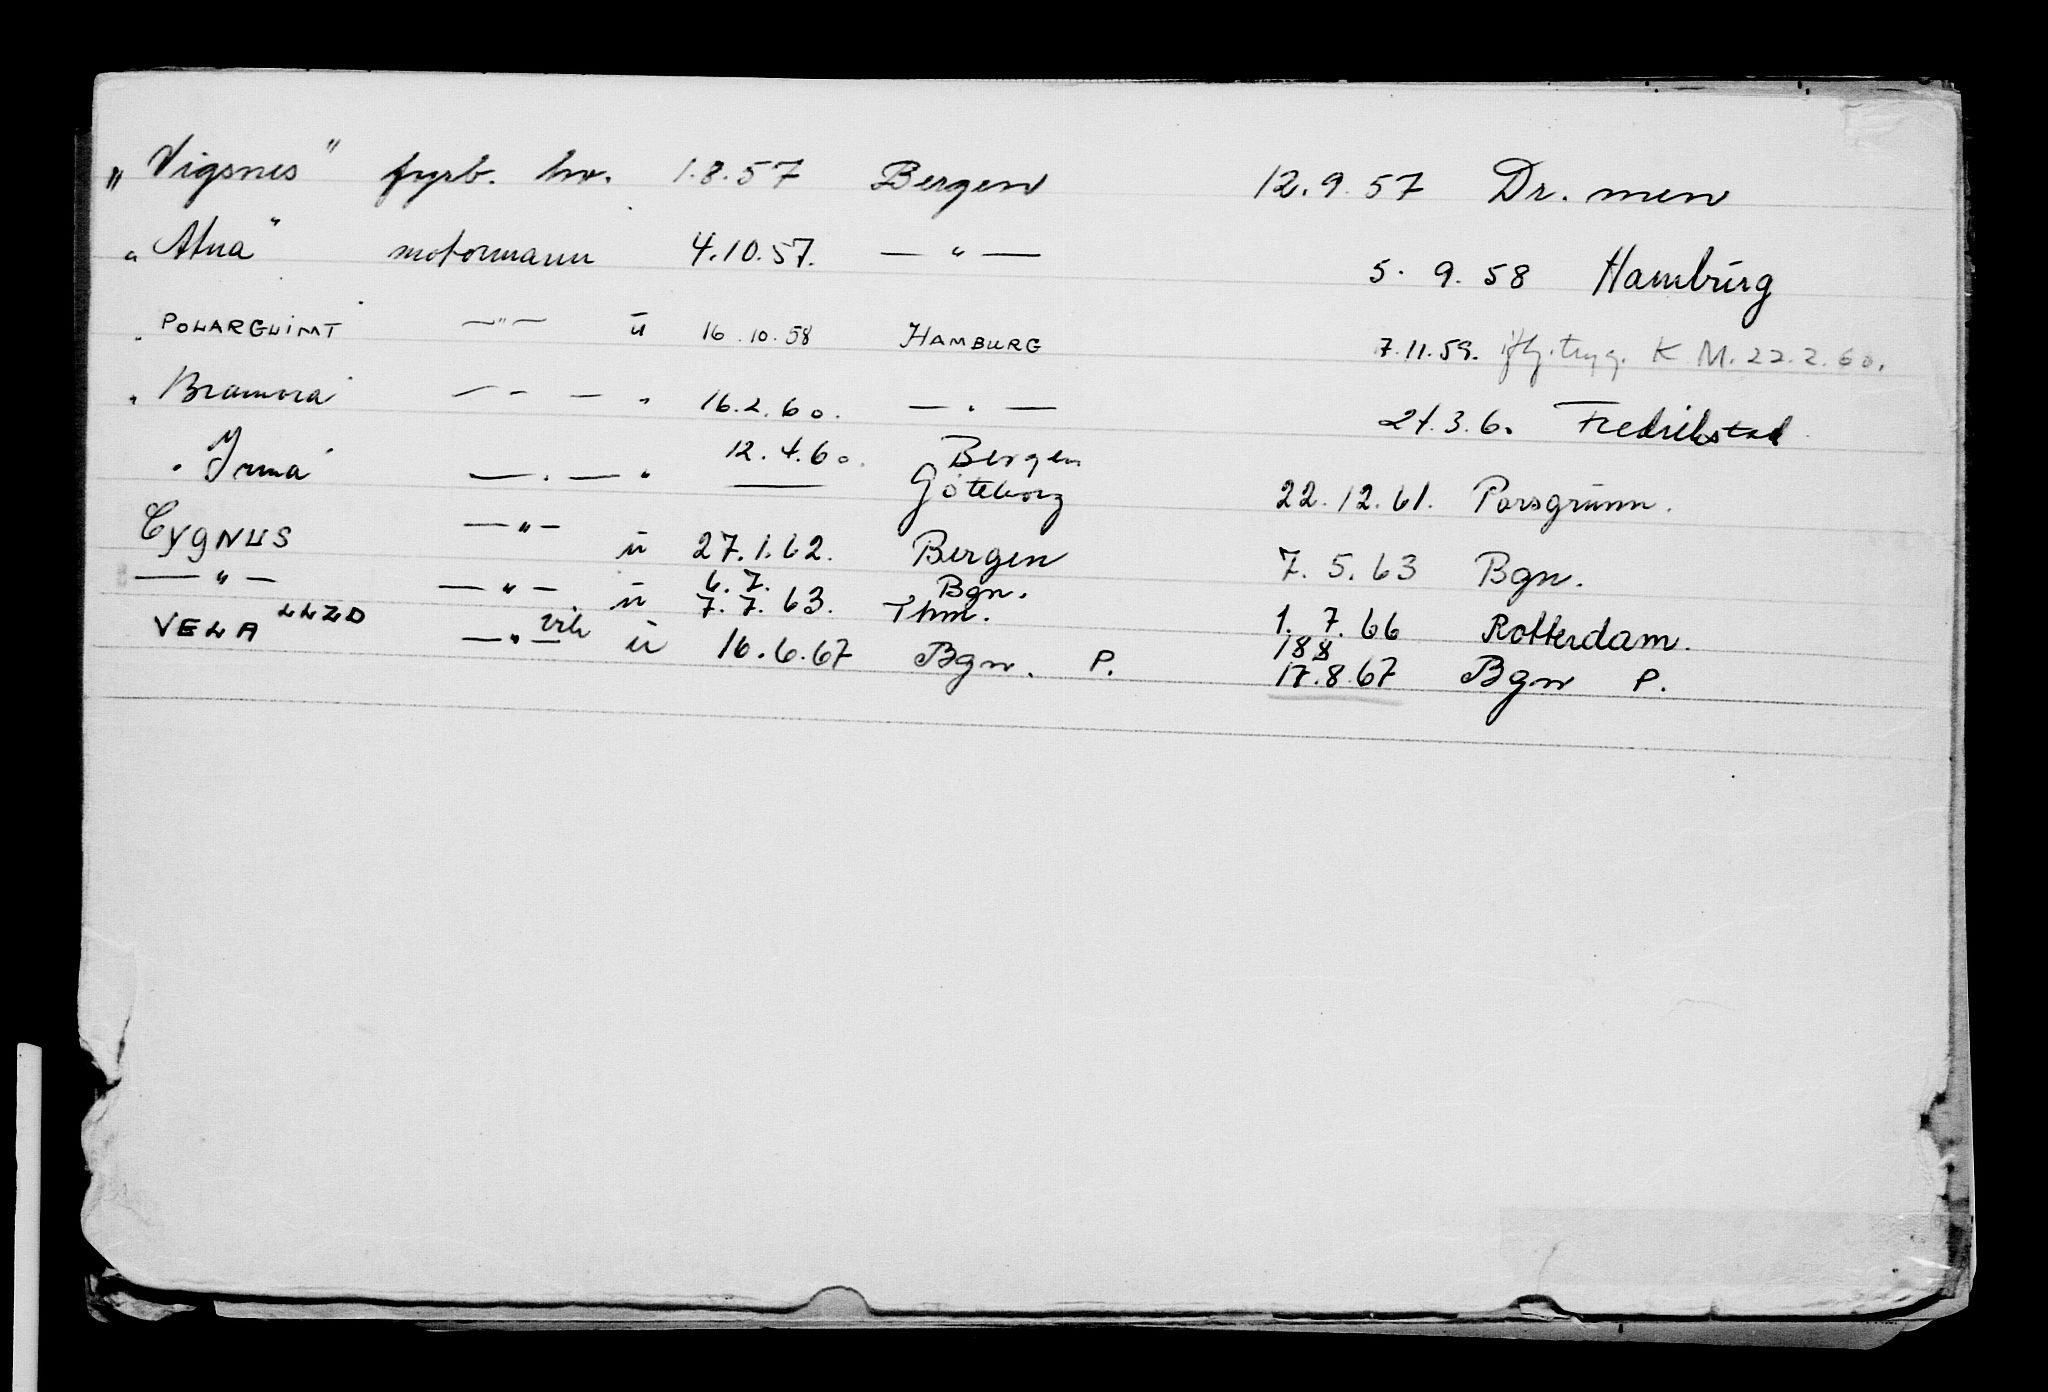 „ Vigsnes " fyrb. hv. 1.8.57 Bergen 12.9.57 Dr.men
„ Atna " motormann 4.10.57. — " — 5. 9. 58 Hamburg
" POLARGLIMT — " — u 16.10.58 HAMBURG 7.11.59. tryg. K M. 22.2.60.
" Bramora " — " — " 16.2.60. — " — 21.3.60 Fredrikstad
" Irma " — " — " 12.4.60. Bergen
Göteborg 22.12.61. Porsgrunn.
CYGNUS — " — u 27.1.62. Bergen 7.5.63 Bgn.
— " — — " — u 6.7. Bgn.
7.7.63. Thm. 1.7.66 Rotterdam.
VELA LLZD — " — vik u 16.6.67 Bgn. P. 17.8.67 Bgn P.
188